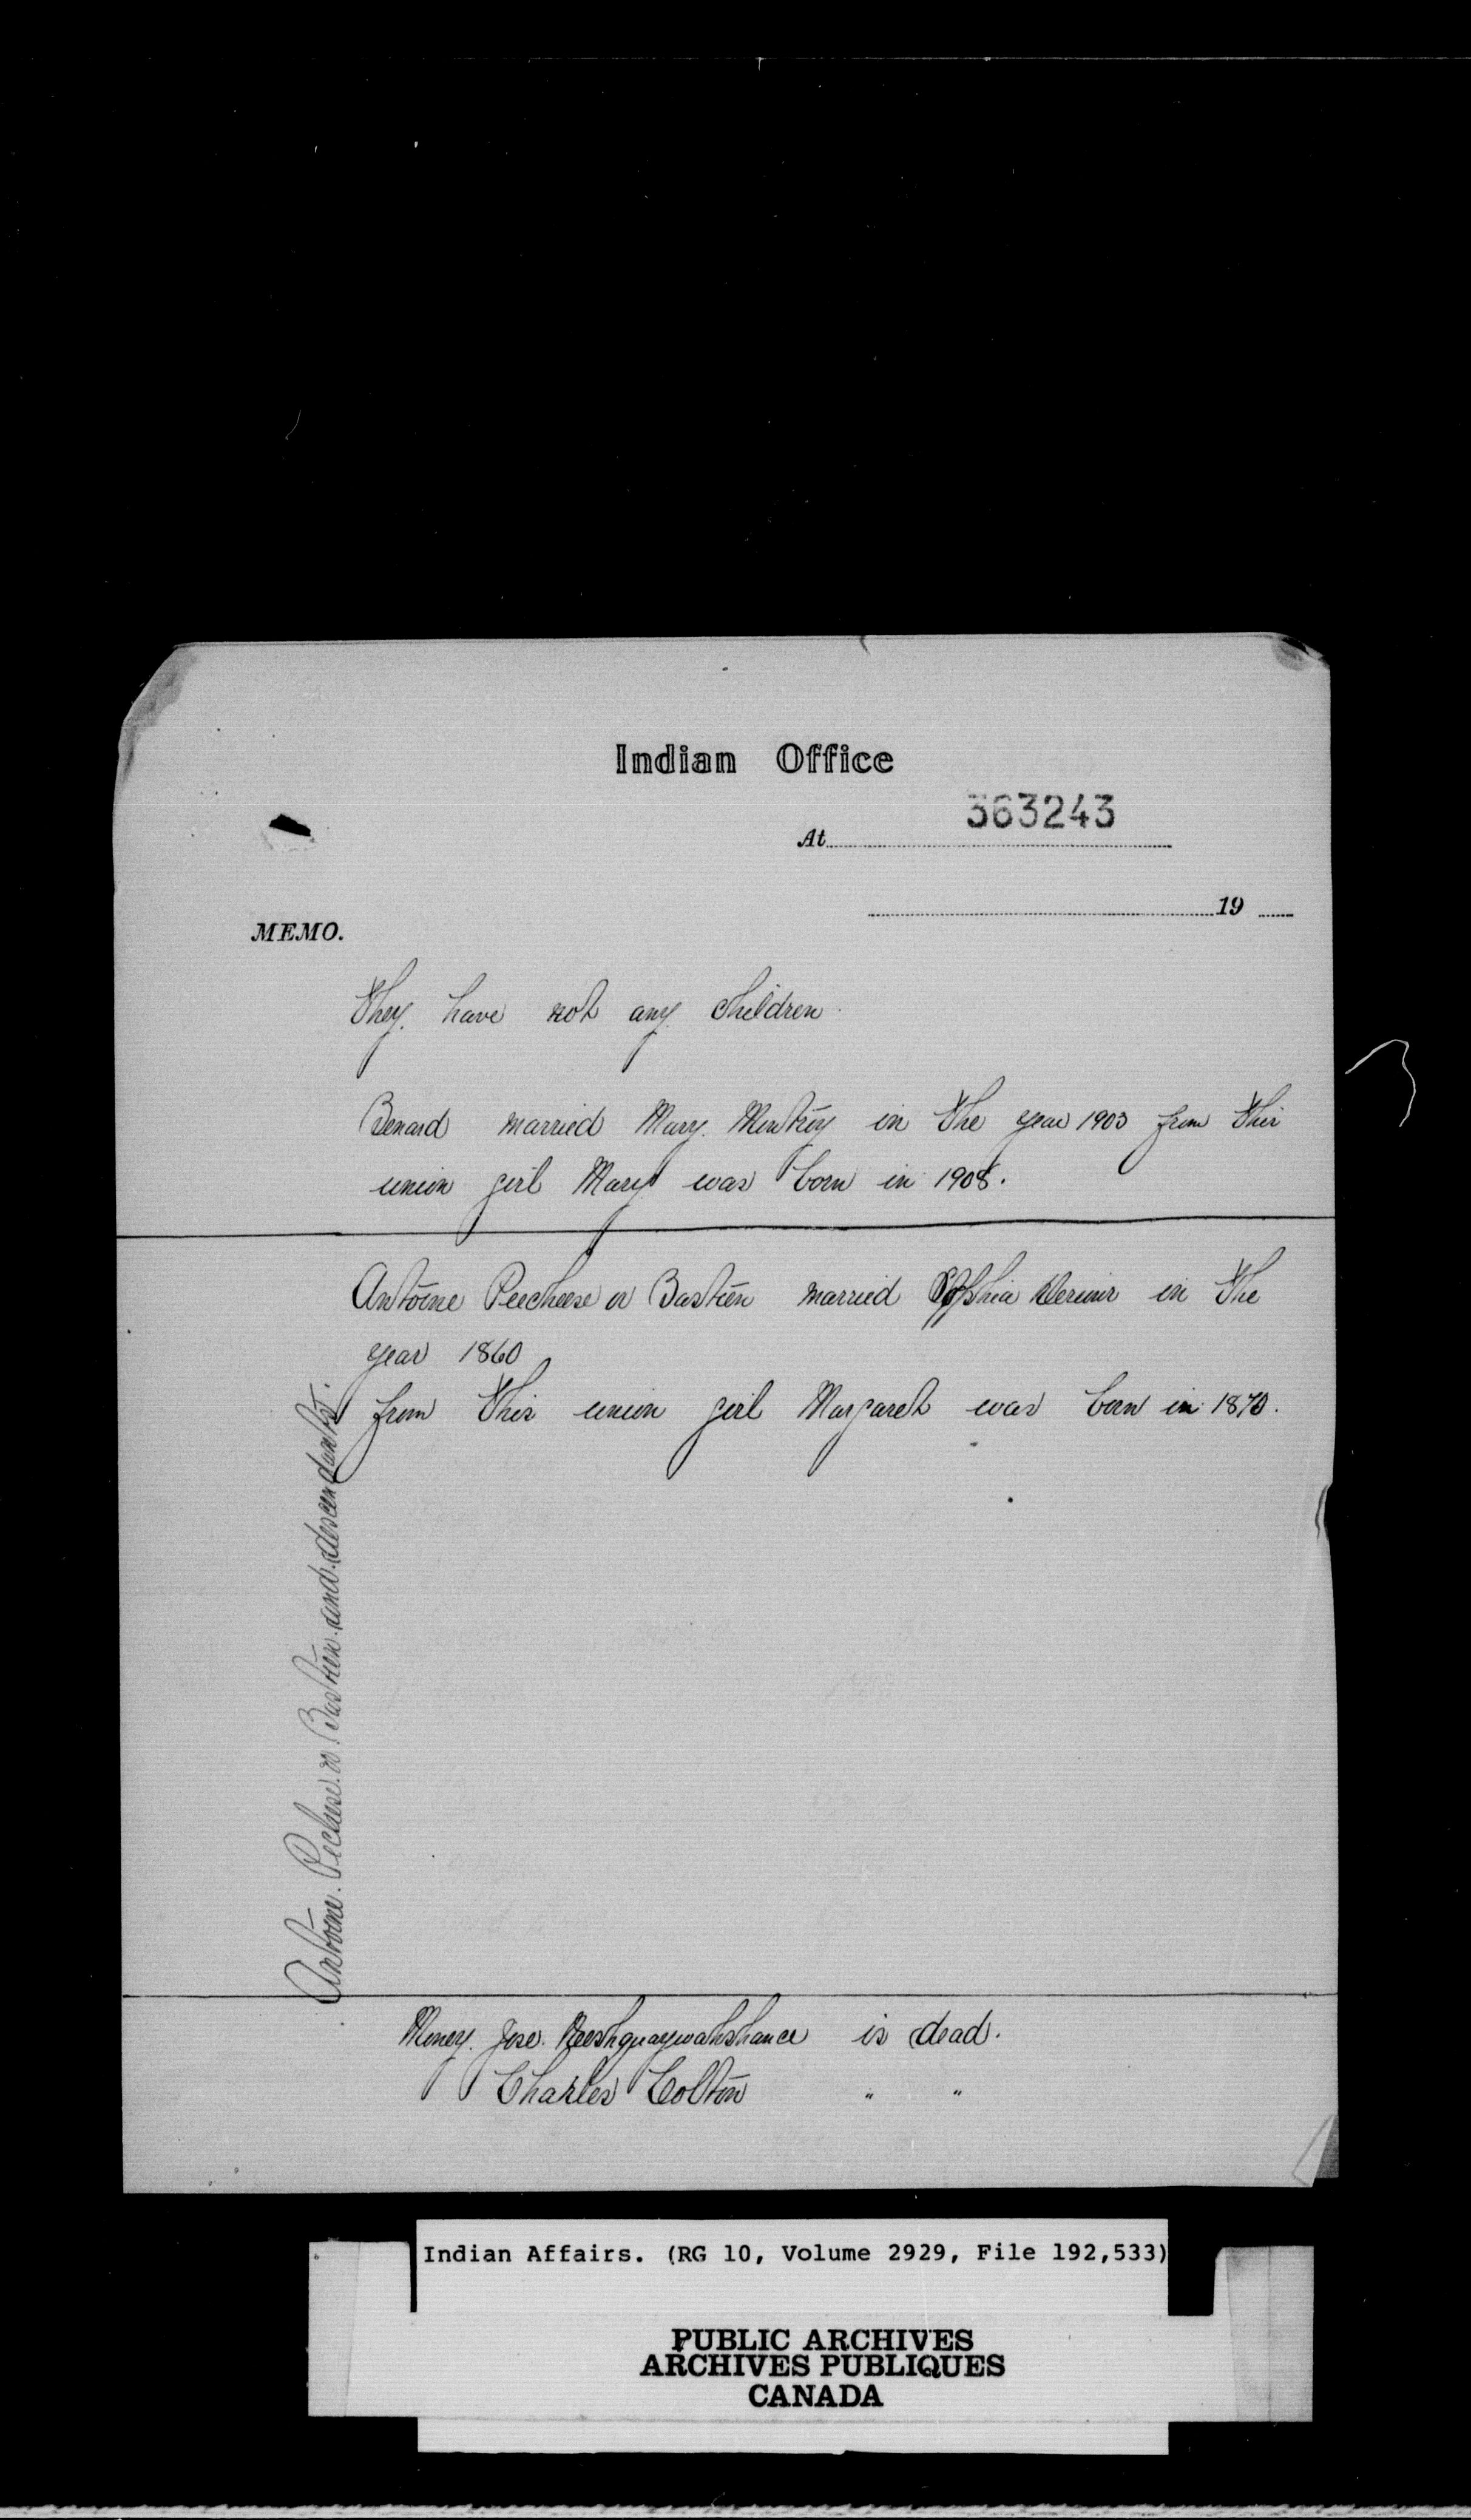 Indian Office
363243
At
19
MEMO.
They have not any children
Benard married Mary in the year 1903 from this
union girl Mary was born in 1908.
Antoine Peecheese or Bastien married Sophia in the
year 1860
from this union girl Margaret was born in 1870.
Antoine Pecheese or Bastien and descendants.
is dead.
Charles Colton " "
Indian Affairs. (RG 10, Volume 2929, File 192,533)
PUBLIC ARCHIVES
ARCHIVES PUBLIQUES
CANADA